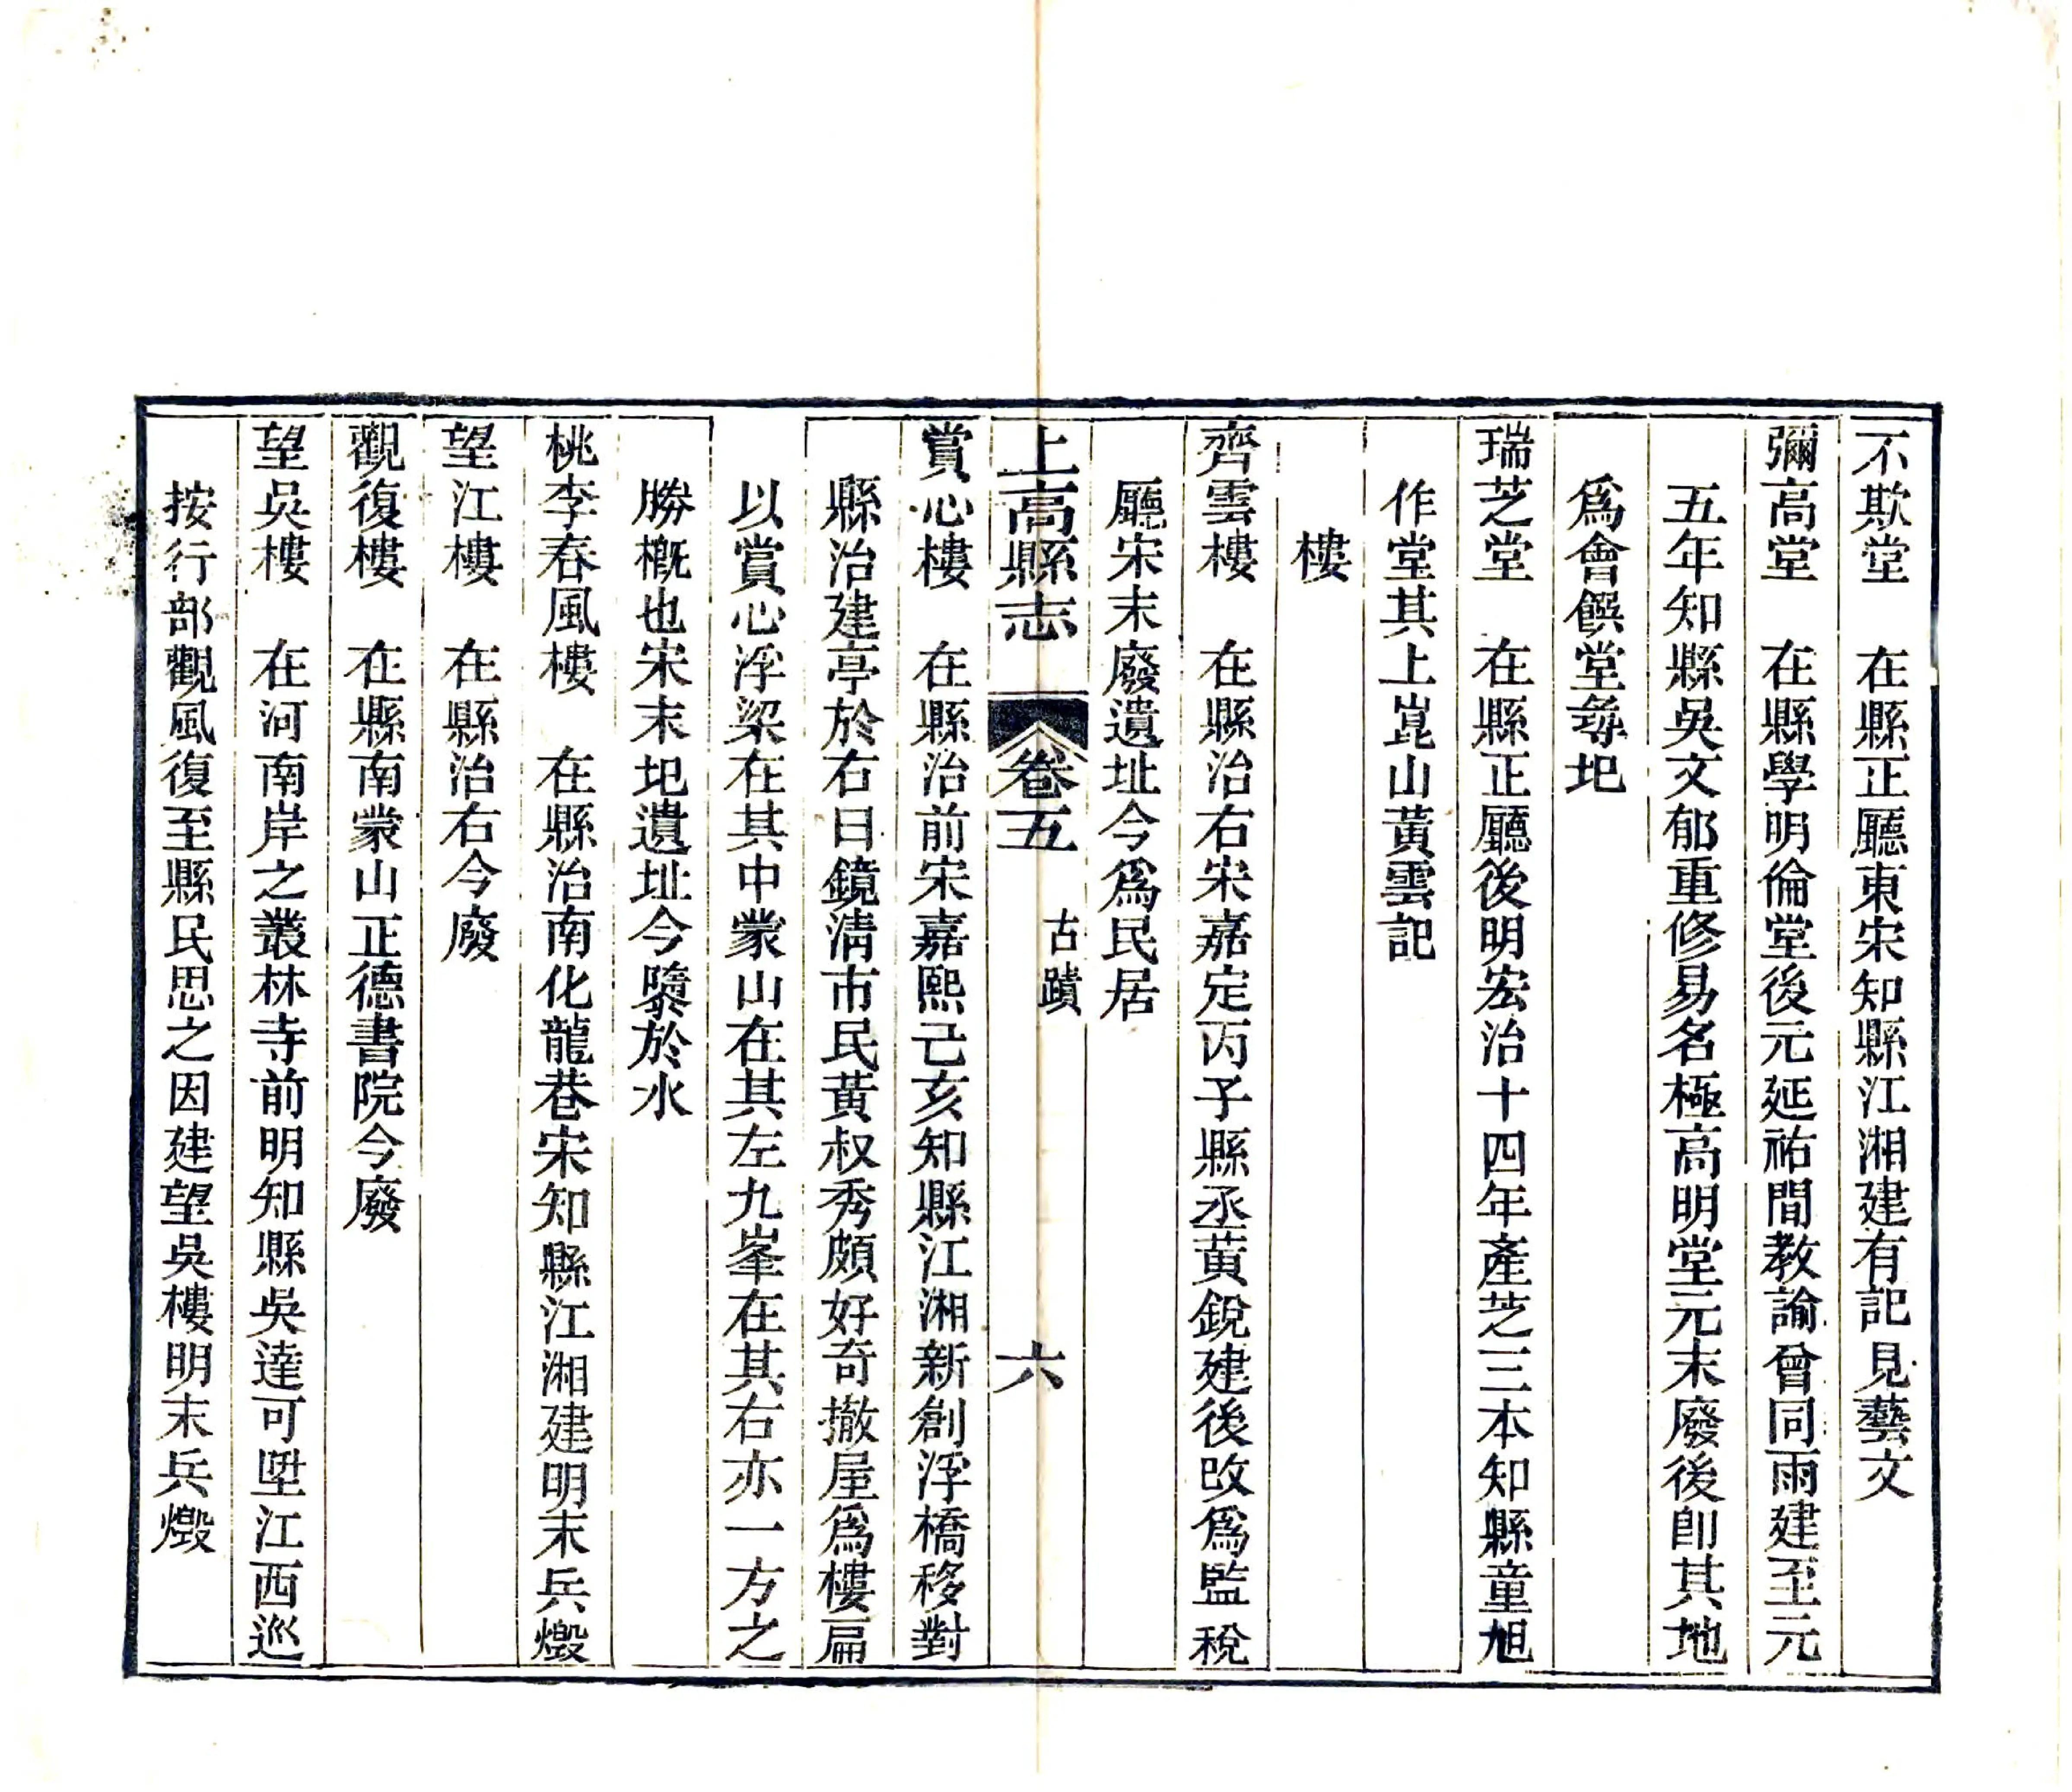 不欺堂　在縣正廳東宋知縣江湘建有記見藝文
彌高堂　在縣學明倫堂後元延祐間教諭曾同雨建至元
五年知縣吳文郁重修易名極高明堂元末廢後卽其地
爲會饌堂尋圯
瑞芝堂　在縣正廳後明宏治十四年產芝三本知縣童旭
作堂其上崑山黃雲記
樓
齊雲樓　在縣治右宋嘉定丙子縣丞黃銳建後改爲監稅
廳宋末廢遺址今爲民居
上高縣志　卷五　古蹟　六
賞心樓　在縣治前宋嘉熙己亥知縣江湘新創浮橋移對
縣治建亭於右曰鏡淸市民黃叔秀頗好奇撤屋爲樓扁
以賞心浮梁在其中蒙山在其左九峯在其右亦一方之
勝槪也宋末圯遺址今隳於水
桃李春風樓　在縣治南化龍巷宋知縣江湘建明末兵燬
望江樓　在縣治右今廢
觀復樓　在縣南蒙山正德書院今廢
望吳樓　在河南岸之叢林寺前明知縣吳達可陞江西巡
按行部觀風復至縣民思之因建望吳樓明末兵燬